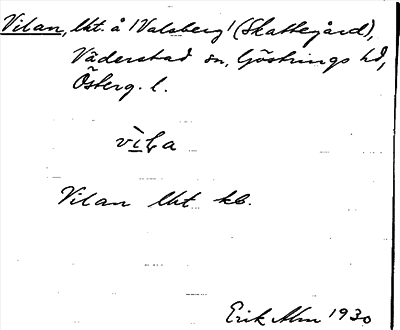 Vilan, lht. å 'Valsberg' (Skattegård),
Väderstad sn, Göstrings hd,
Österg. l.
Vilan lht kb.
Erik Alm 1930